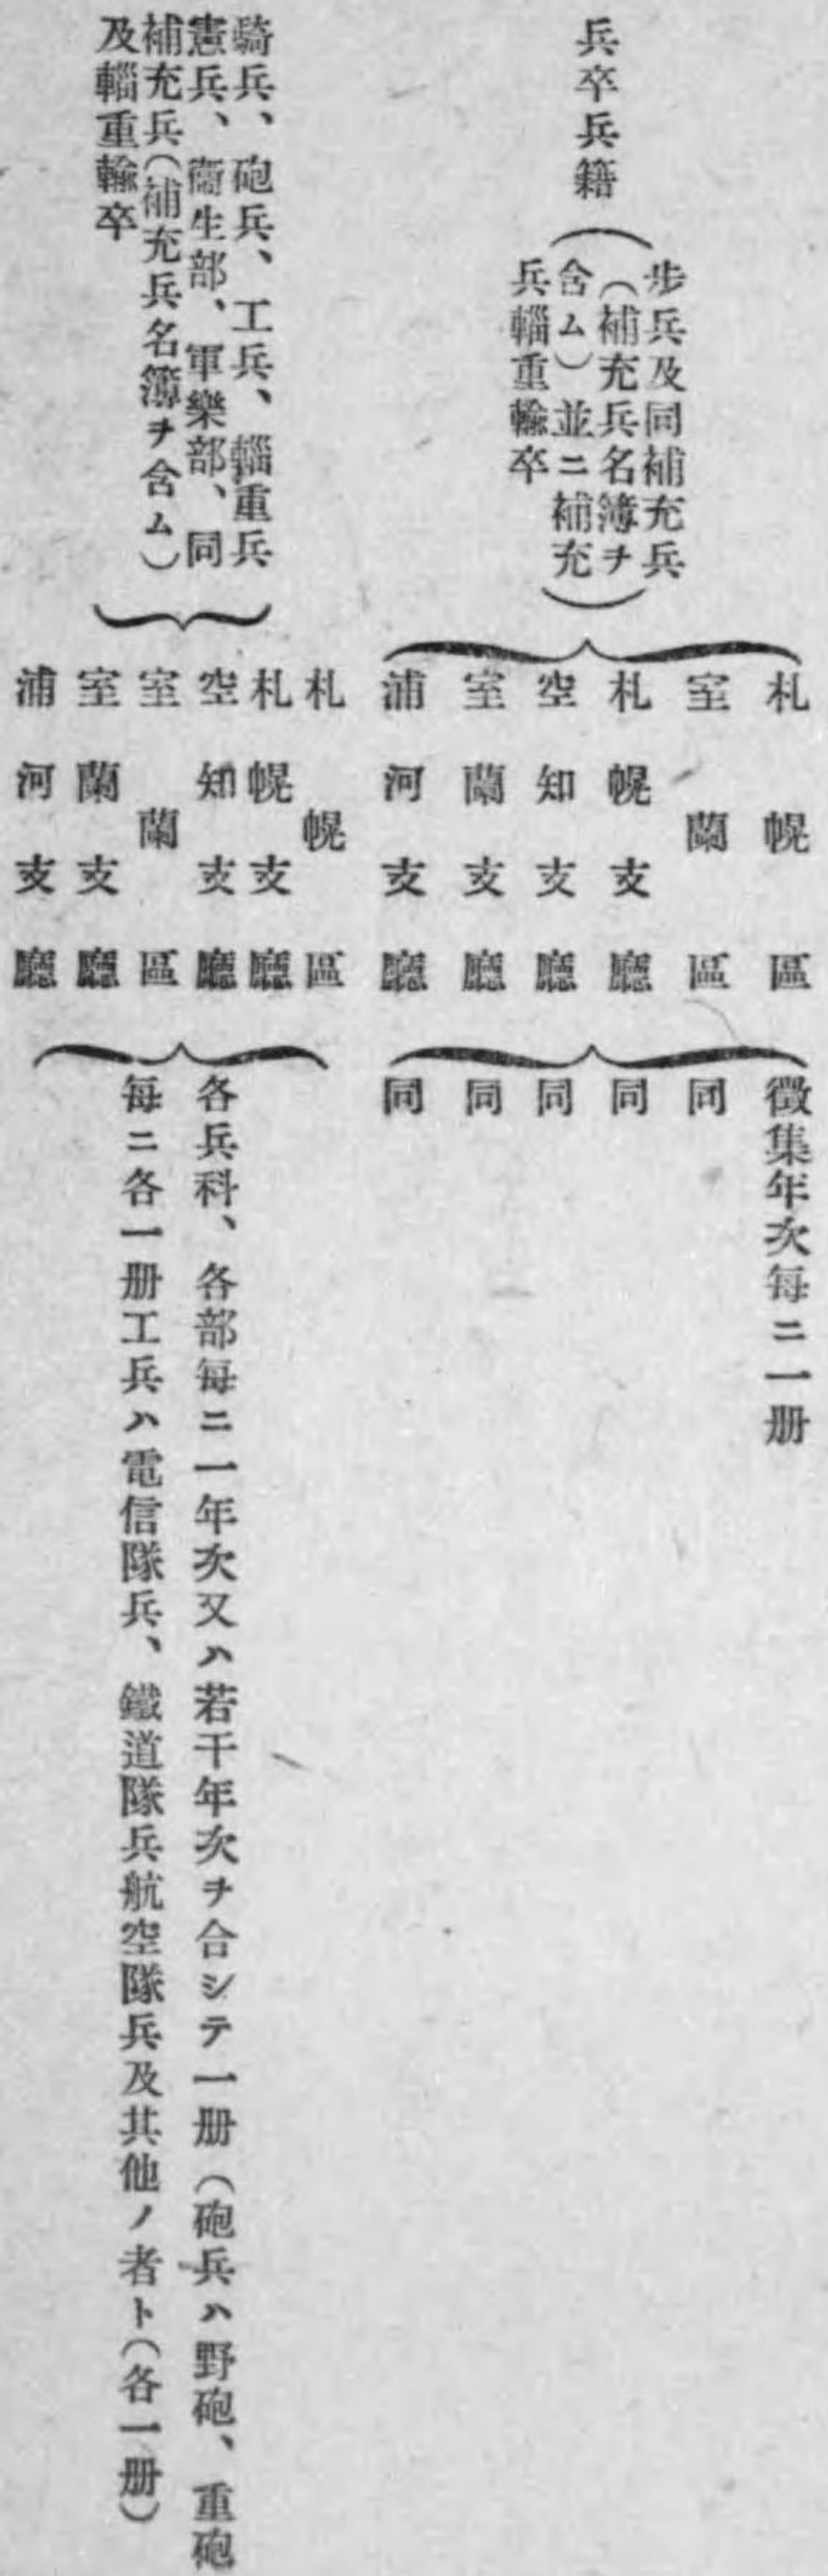 兵卒兵籍
(步兵及同補充兵
(補充兵名簿ヲ
含ム)並ニ補充
兵輜重輸卒)
札幌區
室蘭區
札幌支廳
空知支廳
室蘭支廳
浦河支廳
徵集年次每ニ一册
同
同
同
同
同
騎兵、砲兵、工兵、輜重兵
憲兵、衞生部、軍樂部、同
補充兵(補充兵名簿ヲ含ム)
及輜重輸卒
札幌區
札幌支廳
空知支廳
室蘭區
室蘭支廳
浦河支廳
各兵科、各部每ニ一年次又ハ若干年次ヲ合シテ一册(砲兵ハ野砲、重砲
每ニ各一册工兵ハ電信隊兵、鐵道隊兵航空隊兵及其他ノ者ト(各一册)